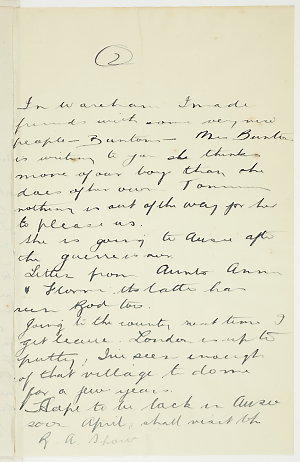 2
In Wareham I made
friends with some very nice
people - Buntons - Mrs Bunton
is writing to you she thinks
more of our boy than she
does of her own. Tommy
nothing is out of the way for her
to please us.
She is going to Ausie after
the guerre is over.
Letter from Aunts Anna
& Florrie the latter has
seen Rod too.
Going to the country next time I
get leave. London is up to
putty, I've seen enough
of that village to do me
for a few years.
Hope to be back in Ausie
soon April, shall visit the
R A Show